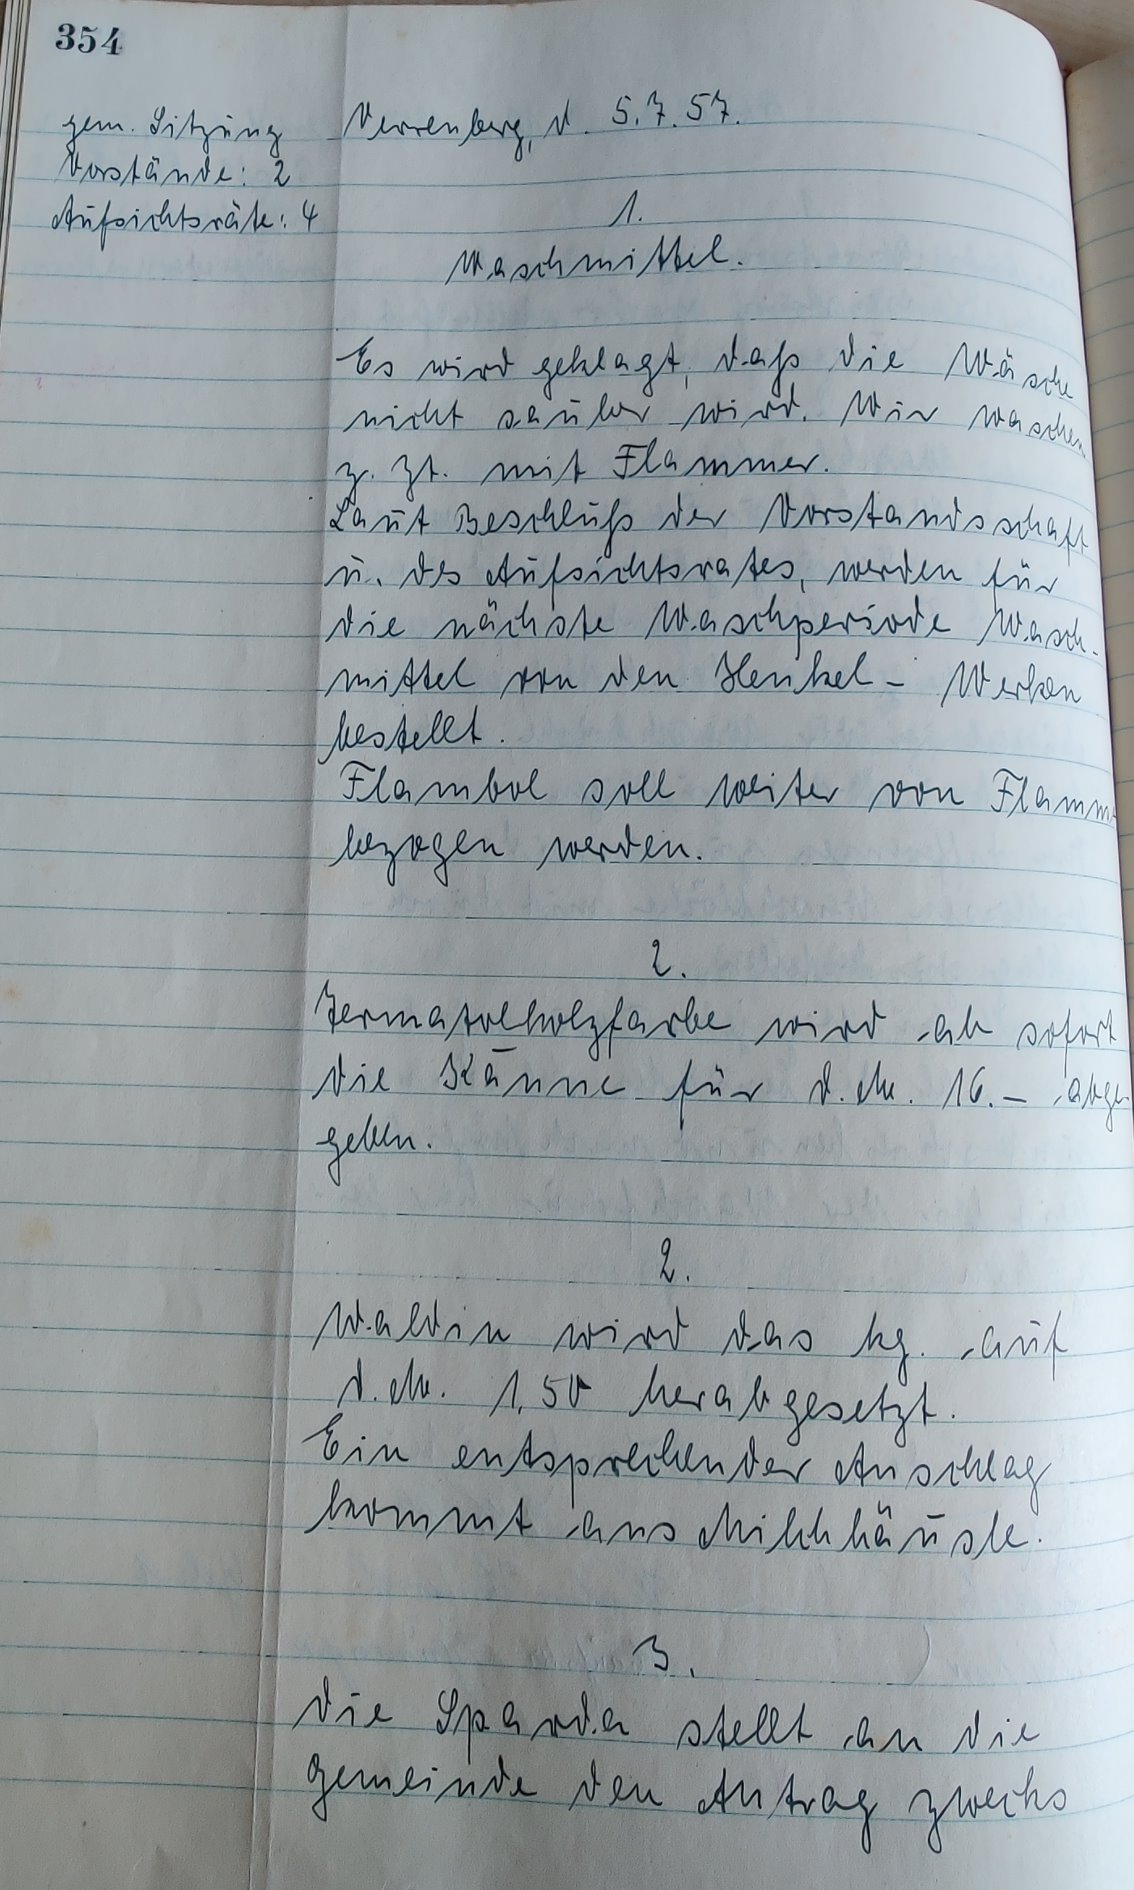 354
gem. Sitzung
Vorstände: 2
Aufsichtsräte: 4
Verrenberg, d. 5.7.57.
1.
Waschmittel.
Es wird geklagt, daß die Wäsche
nicht sauber wird. Wir waschen
z. Zt. mit Flammer.
Laut Beschluß der Vorstandsschaft
u. des Aufsichtsrates, werden für
die nächste Waschperiode Wasch-
mittel von den Henkel- Werken
bestellt.
Flambol soll weiter von Flamm
bezogen werden.
2.
wird ab sofort
die Kanne für d.M. 16.- abge-
geben.
2.
Waldin wird das kg. auf
d.M. 1,50 herabgesetzt.
Ein entsprechender Anschlag
kommt ans Milchhäusle.
3.
Die Sparda stellt an die
Gemeinde den Antrag zwecks